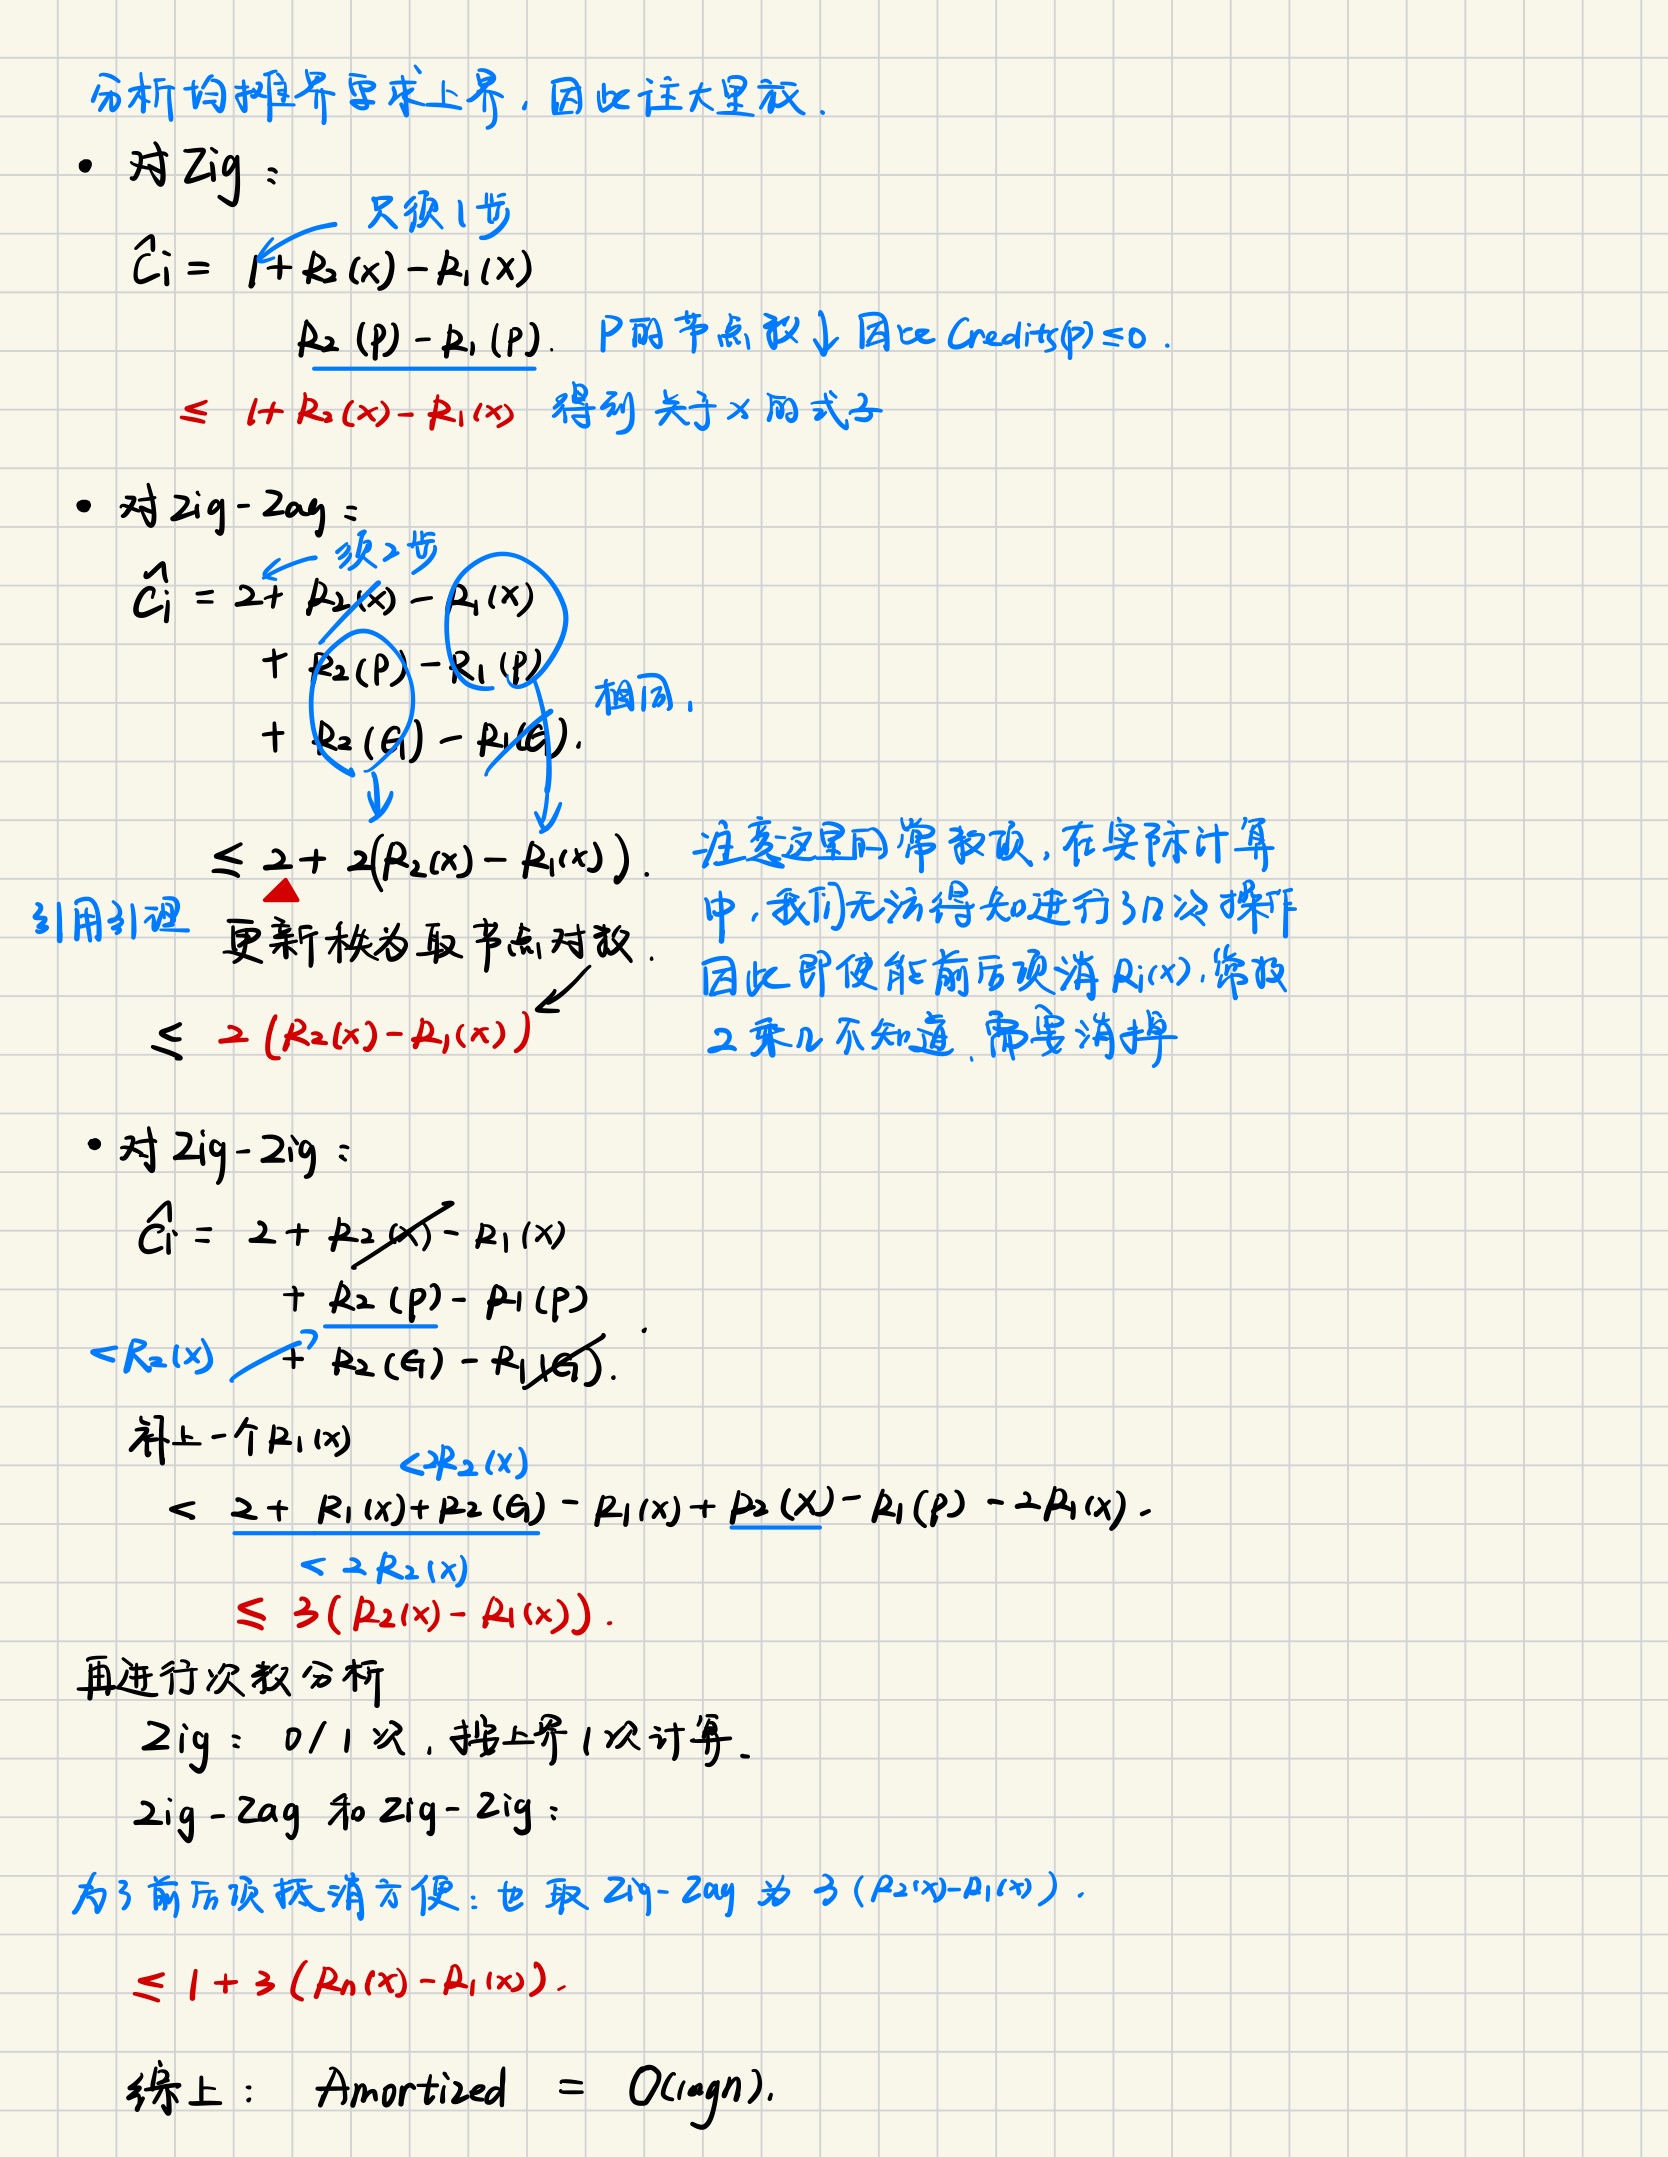 分析均摊界要求上界，因此往大里放.
• 对 Zig：
只须1步
Ĉi = 1 + R₂(x) - R₁(x)
R₂(P) - R₁(P). P的节点数↓因此 Credits(p) ≤ 0 .
≤ 1 + R₂(x) - R₁(x) 得到关于x的式子
• 对 Zig-Zag：
须2步
Ĉi = 2 + R₂(x) - R₁(x)
+ R₂(P) - R₁(P)
相同，
+ R₂(G) - R₁(G).
≤ 2 + 2(R₂(x) - R₁(x)). 注意这里的常数项，在实际计算
引用引理 更新秩为取节点对数. 中，我们无法得知进行了n次操作
因此即使能前后项消Ri(x)，常数
≤ 2(R₂(x) - R₁(x)) 2乘n不知道，需要消掉
• 对 Zig-Zig：
Ĉi = 2 + R₂(x) - R₁(x)
+ R₂(P) - R₁(P)
< R₂(x) + R₂(G) - R₁(G).
补上一个R₁(x)
< 2R₂(x)
< 2 + R₁(x) + R₂(G) - R₁(x) + R₂(x) - R₁(P) - 2R₁(x).
< 2R₂(x)
≤ 3(R₂(x) - R₁(x)).
再进行次数分析
Zig： 0/1次，按上界1次计算.
Zig-Zag 和 Zig-Zig：
为了前后项抵消方便：也取 Zig-Zag 为 3(R₂(x)-R₁(x)).
≤ 1 + 3(Rn(x) - R₁(x)).
综上： Amortized = O(logn).